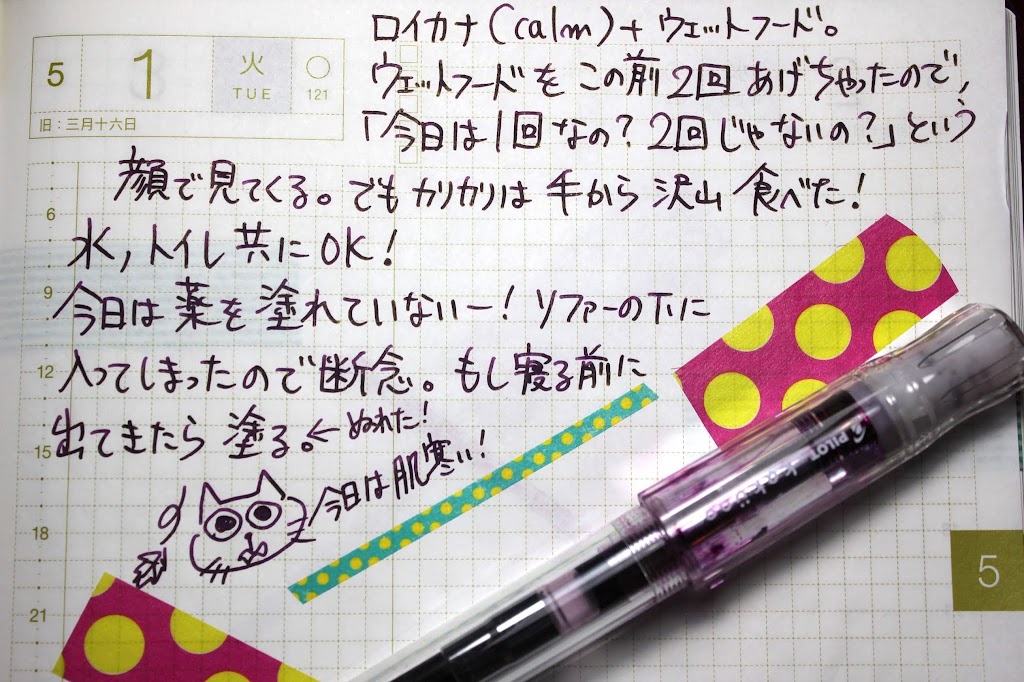 ロイカナ(calm)+ウェットフード。
5 1 火 TUE 121
旧:三月十六日
ウェットフードをこの前2回あげちゃったので、
「今日は1回なの?2回じゃないの?」という
顔で見てくる。でもカリカリは手から沢山食べた!
水,トイレ共にOK!
今日は薬を塗れていないー!ソファーの下に
入ってしまったので断念。もし寝る前に
出てきたら塗る。←ぬれた!
今日は肌寒い!
6
9
12
15
18
21
PILOT
5